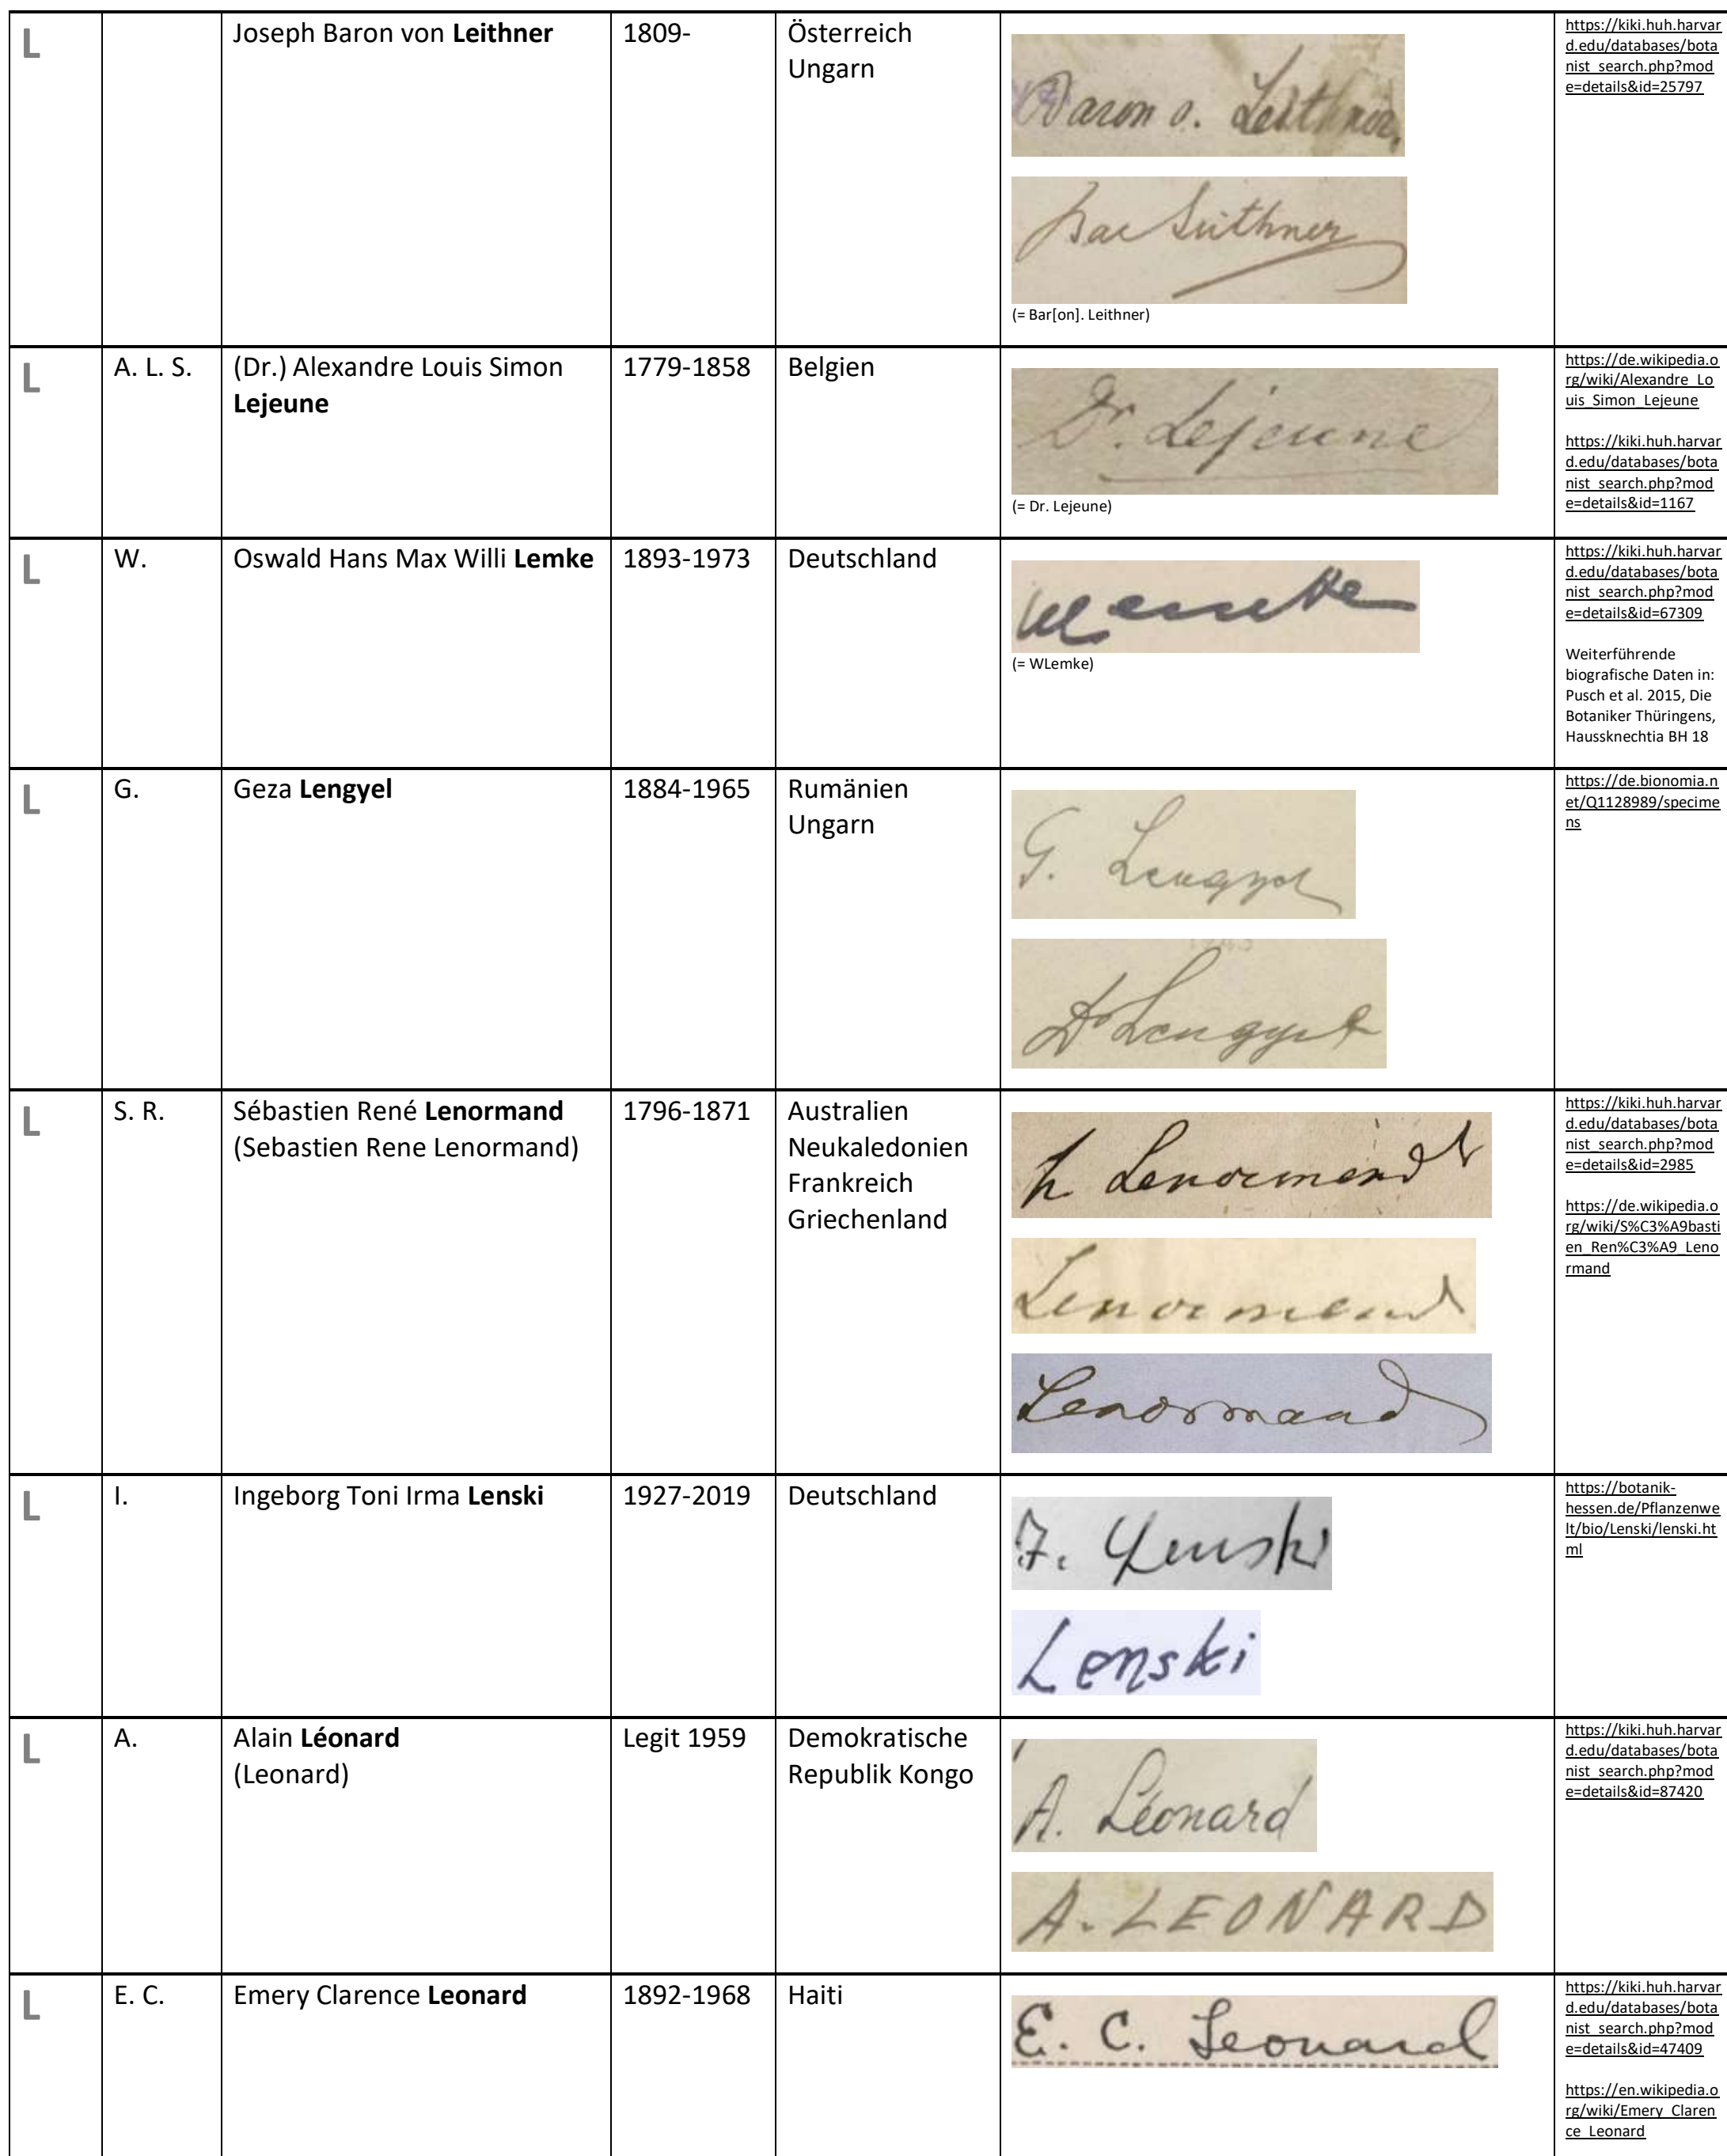 L
Joseph Baron von Leithner
1809-
Österreich
Ungarn
Baron v. Leithner
Bar Leithner
(= Bar[on]. Leithner)
https://kiki.huh.harvar
d.edu/databases/bota
nist_search.php?mod
e=details&id=25797
L
A. L. S.
(Dr.) Alexandre Louis Simon
Lejeune
1779-1858
Belgien
Dr. Lejeune
(= Dr. Lejeune)
https://de.wikipedia.o
rg/wiki/Alexandre_Lo
uis_Simon_Lejeune
https://kiki.huh.harvar
d.edu/databases/bota
nist_search.php?mod
e=details&id=1167
L
W.
Oswald Hans Max Willi Lemke
1893-1973
Deutschland
WLemke
(= WLemke)
https://kiki.huh.harvar
d.edu/databases/bota
nist_search.php?mod
e=details&id=67309
Weiterführende
biografische Daten in:
Pusch et al. 2015, Die
Botaniker Thüringens,
Haussknechtia BH 18
L
G.
Geza Lengyel
1884-1965
Rumänien
Ungarn
G. Lengyel
Dr Lengyel
https://de.bionomia.n
et/Q1128989/specime
ns
L
S. R.
Sébastien René Lenormand
(Sebastien Rene Lenormand)
1796-1871
Australien
Neukaledonien
Frankreich
Griechenland
Lenormand
Lenormand
Lenormand
https://kiki.huh.harvar
d.edu/databases/bota
nist_search.php?mod
e=details&id=2985
https://de.wikipedia.o
rg/wiki/S%C3%A9basti
en_Ren%C3%A9_Leno
rmand
L
I.
Ingeborg Toni Irma Lenski
1927-2019
Deutschland
I. Lenski
Lenski
https://botanik-
hessen.de/Pflanzenwe
lt/bio/Lenski/lenski.ht
ml
L
A.
Alain Léonard
(Leonard)
Legit 1959
Demokratische
Republik Kongo
A. Léonard
A. LEONARD
https://kiki.huh.harvar
d.edu/databases/bota
nist_search.php?mod
e=details&id=87420
L
E. C.
Emery Clarence Leonard
1892-1968
Haiti
E. C. Leonard
https://kiki.huh.harvar
d.edu/databases/bota
nist_search.php?mod
e=details&id=47409
https://en.wikipedia.o
rg/wiki/Emery_Claren
ce_Leonard